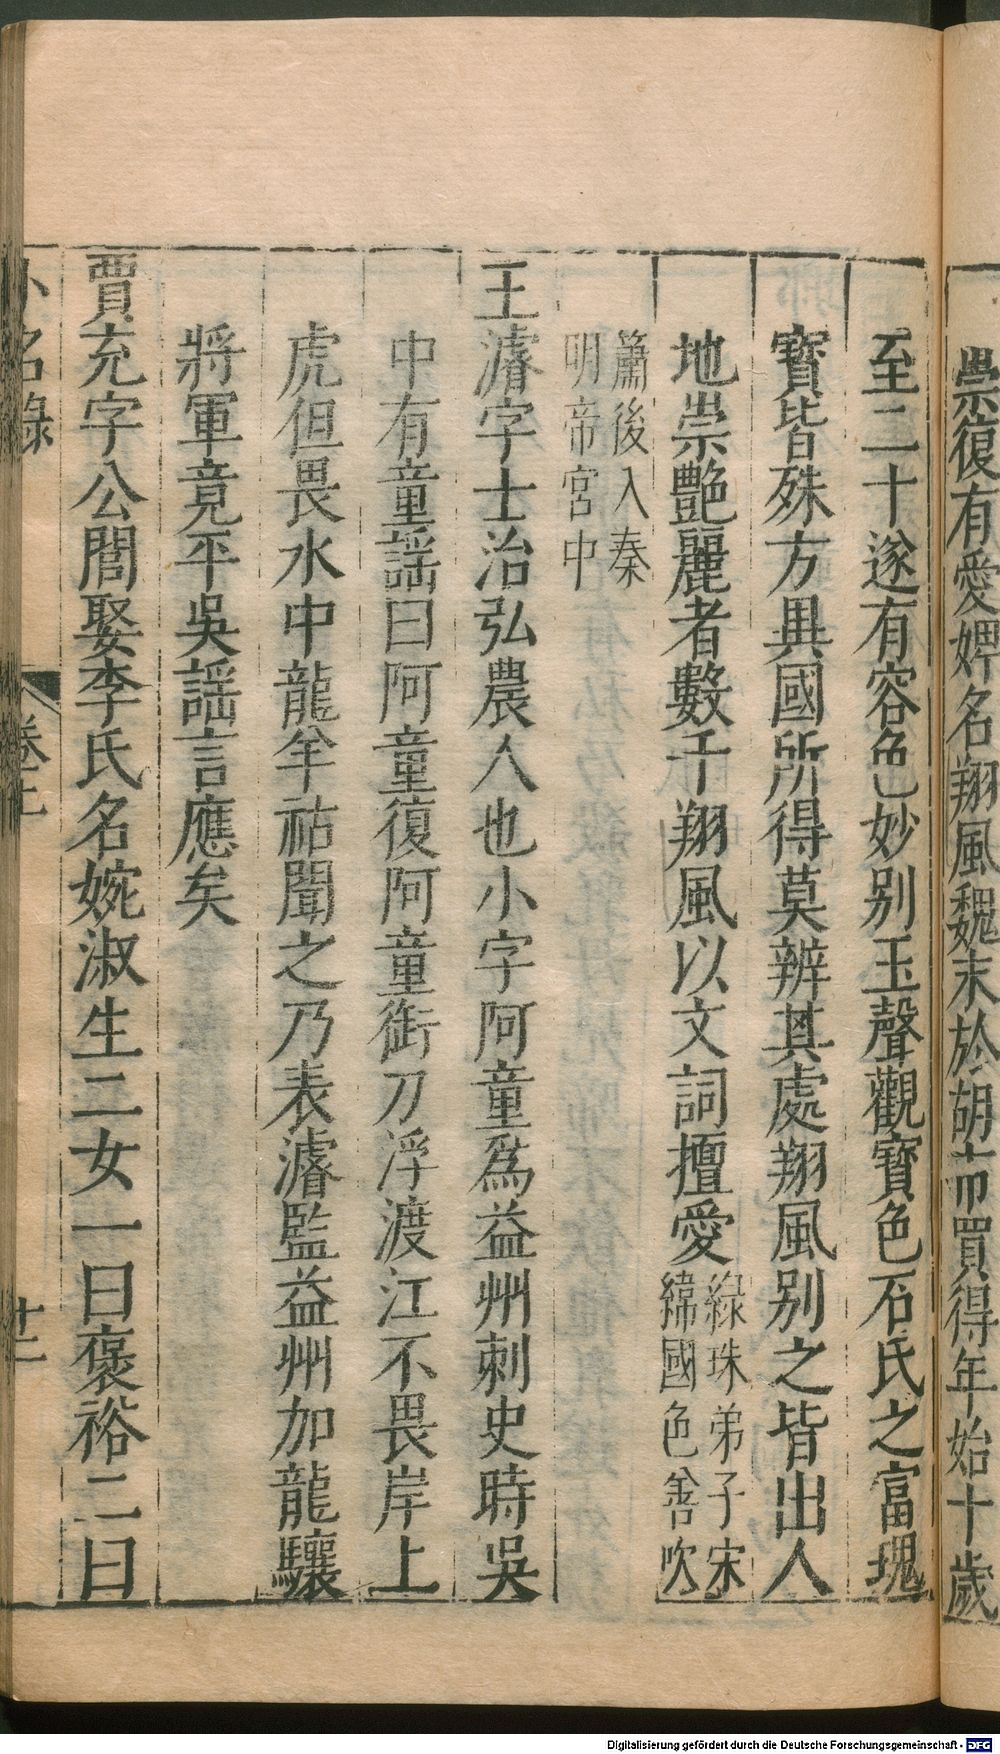 崇復有愛婢名翔風魏末於胡市買得年始十歲
至二十遂有容色妙别玉聲觀寶色石氏之富瑰
寶皆殊方異國所得莫辨其處翔風别之皆出人
地崇艷麗者數千翔風以文詞擅愛
綠珠弟子宋
緯國色善吹
簫後入秦
明帝宮中
王濬字士治弘農人也小字阿童爲益州刺史時吳
中有童謡曰阿童復阿童銜刀浮渡江不畏岸上
虎但畏水中龍羊祜聞之乃表濬監益州加龍驤
將軍竟平吳謡言應矣
賈充字公閭娶李氏名婉淑生二女一曰褒裕二曰
小名錄
卷上
十二
Digitalisierung gefördert durch die Deutsche Forschungsgemeinschaft - DFG